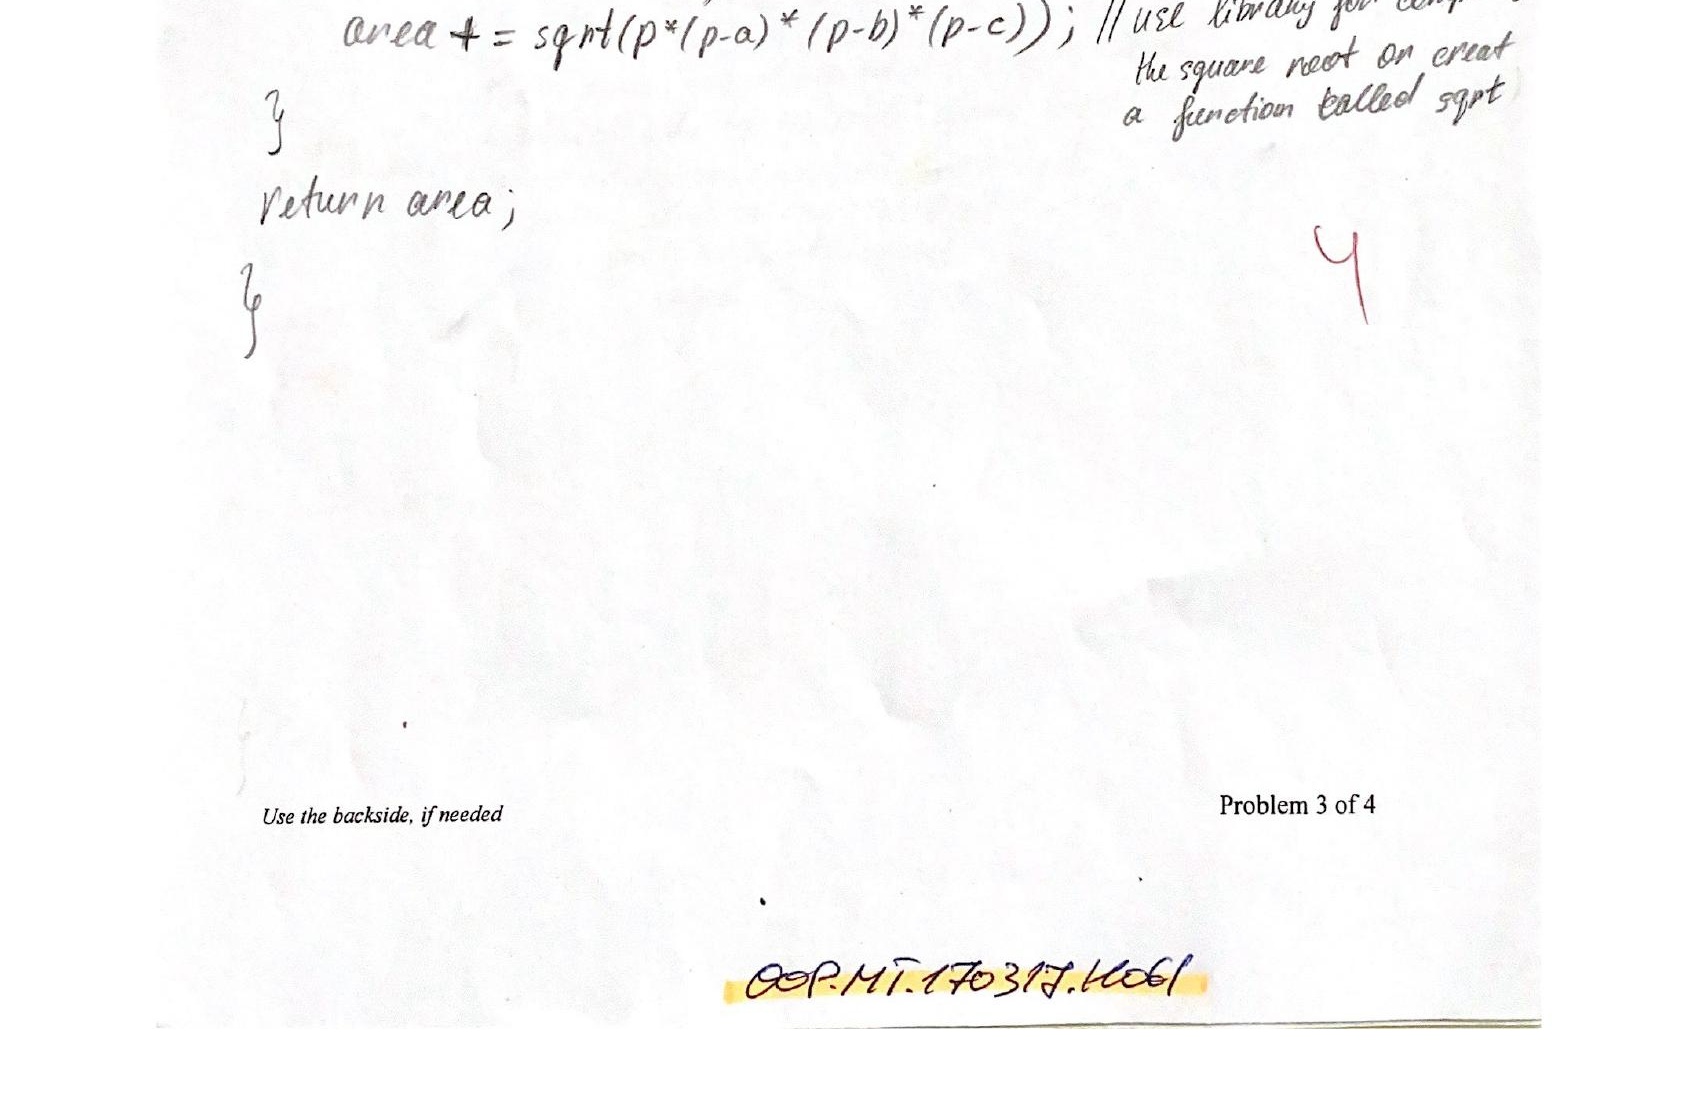 area += sqrt(p*(p-a)*(p-b)*(p-c)); // use library for
the square root or creat
a function called sqrt
}
return area;
}
4
Use the backside, if needed
Problem 3 of 4
OOP.MT.170317.